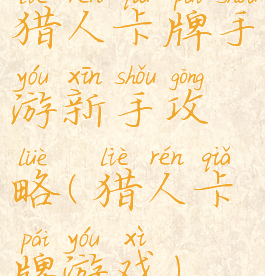 liè rén qiǎ pái shǒu
猎人卡牌手
yóu xīn shǒu gōng
游新手攻
lüè liè rén qiǎ
略(猎人卡
pái yóu xì
牌游戏)